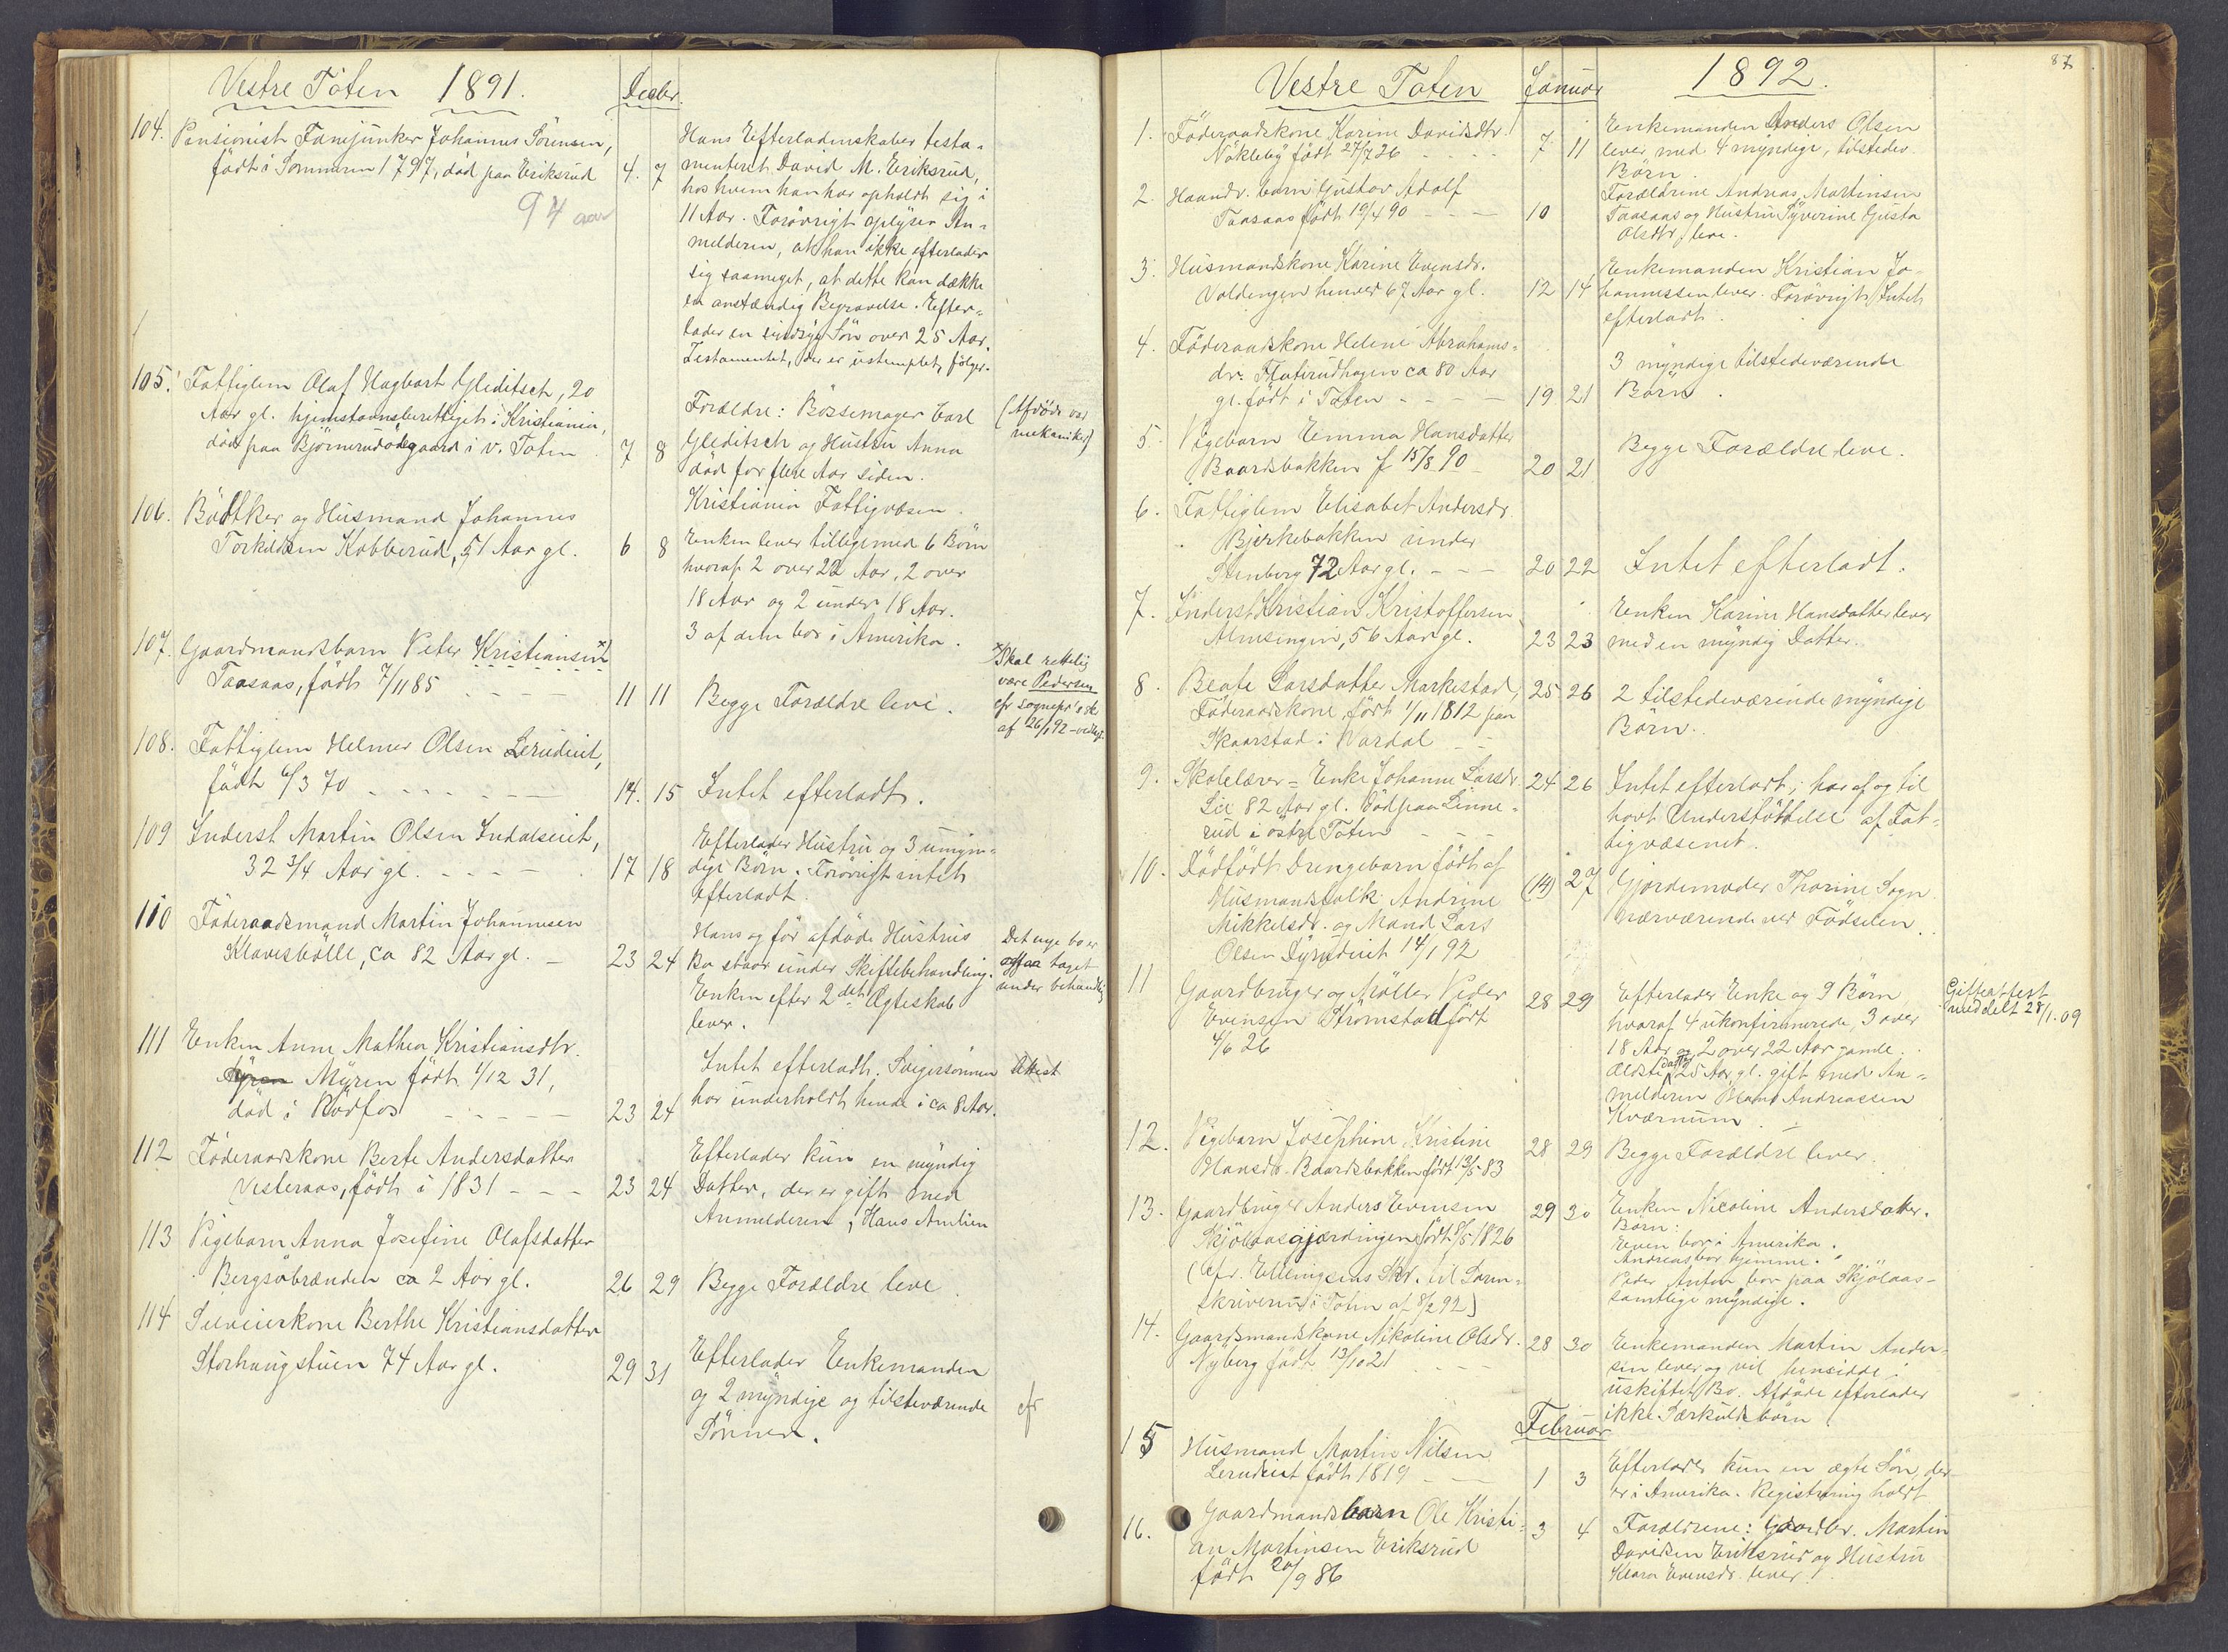 Vestre Toten 1891. Decbr.
104. Pensionist Fanejunker Johannes Sörensen,
födt i Sommeren 1797, död paa Eriksrud 4. 7
94 aar
Hans Efterladenskaber testa-
menteret David M. Eriksrud,
hos hvem han har opholdt sig i
11 Aar. Forövrigt oplyser An-
melderen, at han ikke efterlader
sig saameget, at dette kan dække
en anstændig Begravelse. Efter-
lader en sindssyg Sön over 25 Aar.
Testamentet, der er ustemplet, fölger.
105. Fattiglem Olaf Hagbart Gleditsch, 20
Aar gl. hjemstavnsberettiget i Kristiania,
död paa Björnerudödegaard i V. Toten 7 8
Forældre: Börsemager Carl
Gleditsch og Hustru Anna
död for flere Aar siden.
Kristiania Fattigvæsen.
(Afdöde var
mekaniker)
106. Bödtker og Husmand Johannes
Torkildsen Kobberud, 51 Aar gl. 6 8
Enken lever tilligemed 6 Börn
hvoraf 2 over 22 Aar, 2 over
18 Aar og 2 under 18 Aar.
3 af dem bor i Amerika.
107. Gaardmandsbarn Peter Kristiansen x)
Taasaas, födt 7/11 85 11 11
Begge Forældre leve.
x) Skal rettelig
være Pedersen
cfr sognepr's sk
af 26/1 92 - vedlagt
108. Fattiglem Helmer Olsen Lerudeiet,
födt 6/3 70 14. 15 Intet efterladt.
109 Inderst Martin Olsen Indalseiet,
32 3/4 Aar gl. 17 18
Efterlader Hustru og 3 umyn-
dige Börn. Forövrigt intet
efterladt.
110 Föderaadsmand Martin Johannesen
Klavesbölle, ca 82 Aar gl. 23 24
Hans og för afdöde Hustrus
Bo staar under Skiftebehandling.
Enken efter 2det Ægteskab
lever.
Det nye bo er
ogsaa taget
under behandlig
111 Enken Anne Mathea Kristiansdtr.
Myren födt 1/12 31,
död i Rödfos 23 24
Intet efterladt. Svigersönnen
har underholdt hende i ca 8 Aar.
Attest
112 Föderaadskone Berte Andersdatter
Vesteraas, födt i 1831 23 24
Efterlader kun en myndig
Datter, der er gift med
Anmelderen, Hans Amlien
113 Pigebarn Anna Josefine Olafsdatter
Bergsöbrænden ca 2 Aar gl. 26 29 Begge Forældre leve
114 Selveierkone Berthe Kristiansdatter
Storhaugstuen 74 Aar gl. 29 31
Efterlader Enkemanden
og 2 myndige og tilsteværende
Sönner.
cfr
Vestre Toten Januar 1892. 87
1. Föderaadskone Karine Davidsdtr.
Nökleby födt 27/7 26 7 11
Enkemanden Anders Olsen
lever med 4 myndige, tilstedev.
Börn.
2. Haandv. barn Gustav Adolf
Taasaas födt 19/4 90 10
Forældrene Andreas Martinsen
Taasaas og Hustru Syverine Gusta
Olsdtr leve.
3. Husmandskone Karine Evensdr.
Voldengen henved 67 Aar gl. 12 14
Enkemanden Kristian Jo-
hannessen lever. Forövrigt Intet
efterladt.
4. Föderaadskone Helene Abrahams-
dr. Fluterudhagen ca 80 Aar
gl. födt i Toten 19 21
3 myndige tilstedeværende
Börn.
5. Pigebarn Emma Hansdatter
Baardsbakken f 15/8 90 20 21
Begge Forældre leve.
6. Fattiglem Elisabet Andersdr.
Bjerkebakken under
Stenberg 72 Aar gl. 20 22 Intet efterladt.
7. Inderst Kristian Kristoffersen
Almsengen, 56 Aar gl. 23 23
Enken Karine Hansdatter lever
med en myndig Datter.
8. Beate Larsdatter Markestad, 25 26
Föderaadskone, födt 1/11 1812 paa
Skaarstad i Vardal
2 tilstedeværende myndige
Börn.
9. Skolelærer-Enke Johanne Larsdr. 24 26
Lie 82 Aar gl. död paa Linne-
rud i östre Toten
Intet efterladt; har af og til
havt Understöttelse af Fat-
tigvæsenet.
10. Dödfödt Drengebarn födt af
Husmandsfolk Andrine (14) 27
Mikkelsdr. og Mand Lars
Olsen Dyrudeiet 14/1 92
Gjordemoder Thorine Sogn
nærværende ved Födselen.
11 Gaardbruger og Möller Peder 28 29
Evensen Strömstad födt
4/6 26
Efterlader Enke og 9 Börn
hvoraf 4 ukonfirmerede, 3 over
18 Aar og 2 over 22 Aar gamle.
Ældste Datter 25 Aar gl. gift med An-
melderen Hans Andreassen
Kværnum.
Gifteattest
meddelt 28/1.09
12. Pigebarn Josephine Kristine 28 29
Hansdr. Baardsbakken födt 13/5 83
Begge Forældre lever.
13. Gaardbruger Anders Evensen 29 30
Skjölaasgjærdingen födt 8/5 1826
(Cfr. Ellingsens Skr. til Soren-
skriveren i Toten af 8/2 92)
Enken Nicoline Andersdatter.
Börn:
Even bor i Amerika.
Andreas bor hjemme.
Peder Anton bor paa Skjölaas -
samtlige myndige.
14. Gaardmandskone Nikoline Olsdr. 28 30
Nyberg födt 13/10 21
Enkemanden Martin Ander-
sen lever og vil hensidde i
uskiftet Bo. Afdöde efterlader
ikke Særkuldsbörn
Februar
15 Husmand Martin Nilsen
Lerudeiet födt 1819 1 3
Efterlader kun en ægte Sön, der
er i Amerika. Registrering holdt
16. Gaardmandsbarn Ole Kristi- 3 4
an Martinsen Eriksrud
födt 20/9 86
Forældrene: Gaardbr. Martin
Davidsen Eriksrud og Hustru
Klara Evensdr. lever.